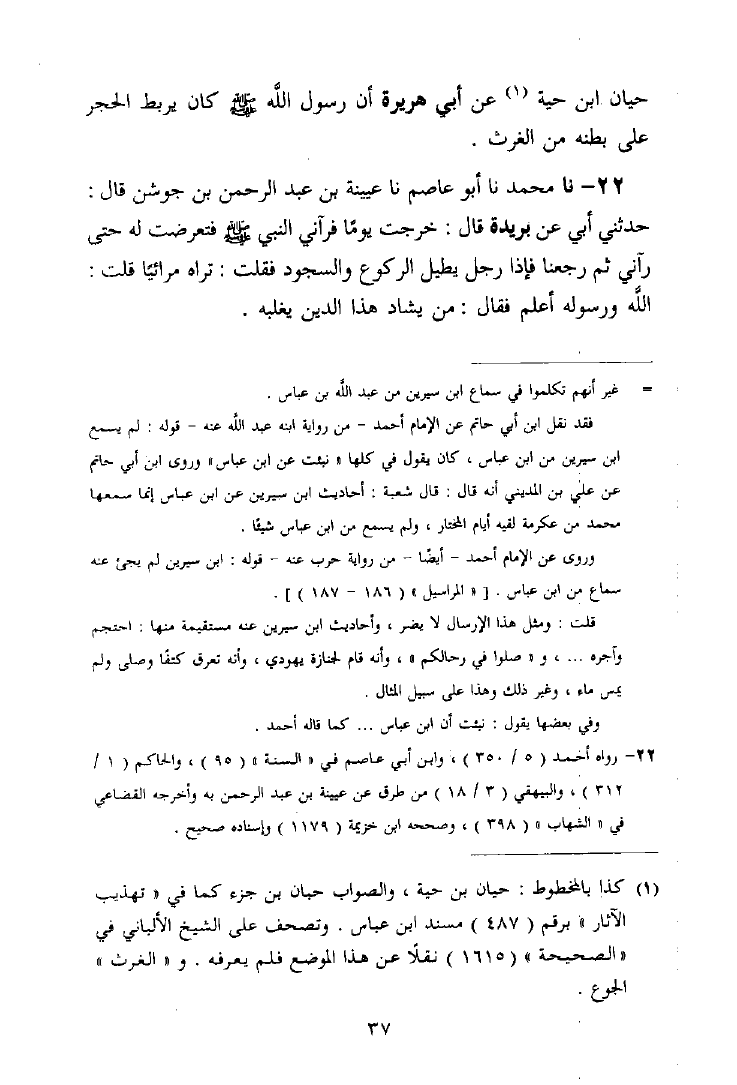 حيان ابن حية (١) عن أبي هريرة أن رسول اللَّه ﷺ كان يربط الحجر
على بطنه من الغرث .
٢٢- نا محمد نا أبو عاصم نا عيينة بن عبد الرحمن بن جوشن قال :
حدثني أبي عن بريدة قال : خرجت يومًا فرآني النبي ﷺ فتعرضت له حتى
رآني ثم رجعنا فإذا رجل يطيل الركوع والسجود فقلت : تراه مرائيًا قلت :
اللَّه ورسوله أعلم فقال : من يشاد هذا الدين يغلبه .
= غير أنهم تكلموا في سماع ابن سيرين من عبد اللَّه بن عباس .
فقد نقل ابن أبي حاتم عن الإمام أحمد - من رواية ابنه عبد اللَّه عنه - قوله : لم يسمع
ابن سيرين من ابن عباس ، كان يقول في كلها « نبئت عن ابن عباس» وروى ابن أبي حاتم
عن علي بن المديني أنه قال : قال شعبة : أحاديث ابن سيرين عن ابن عباس إنما سمعها
محمد من عكرمة لقيه أيام المختار ، ولم يسمع من ابن عباس شيئًا .
وروى عن الإمام أحمد - أيضًا - من رواية حرب عنه - قوله : ابن سيرين لم يجئ عنه
سماع من ابن عباس . [ « المراسيل » ( ١٨٦ - ١٨٧ ) ] .
قلت : ومثل هذا الإرسال لا يضر ، وأحاديث ابن سيرين عنه مستقيمة منها : احتجم
وآجره ... ، و « صلوا في رحالكم » ، وأنه قام لجنازة يهودي ، وأنه تعرق كتفًا وصلى ولم
يمس ماء ، وغير ذلك وهذا على سبيل المثال .
وفي بعضها يقول : نبئت أن ابن عباس ... كما قاله أحمد .
٢٢- رواه أحمد ( ٥ / ٣٥٠ ) ، وابن أبي عاصم في « السنة » ( ٩٥ ) ، والحاكم ( ١ /
٣١٢ ) ، والبيهقي ( ٣ / ١٨ ) من طرق عن عيينة بن عبد الرحمن به وأخرجه القضاعي
في « الشهاب » ( ٣٩٨ ) ، وصححه ابن خزيمة ( ١١٧٩ ) وإسناده صحيح .
(١) كذا بالمخطوط : حيان بن حية ، والصواب حبان بن جزء كما في « تهذيب
الآثار » برقم ( ٤٨٧ ) مسند ابن عباس . وتصحف على الشيخ الألباني في
«الصحيحة » (١٦١٥ ) نقلًا عن هذا الموضع فلم يعرفه . و « الغرث »
الجوع .
٣٧